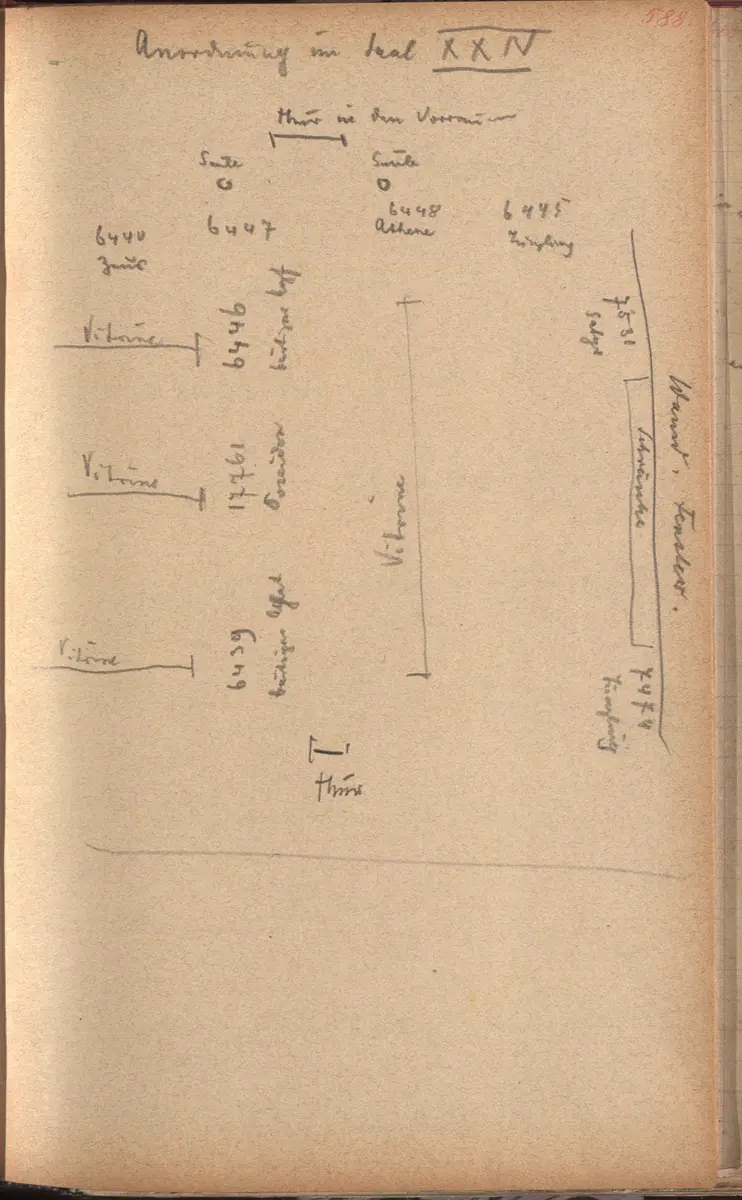 588.
Anordnung im Saal XXIV
Thür in den Vorraum
Säule
Säule
6440
Zeus
6447
6448
Athene
6445
Jüngling
7531
Satyr
Vitrine
6446
bärtiger Kopf
Vitrine
Schränke
Wand. Fenster.
Vitrine
Poseidon
Vitrine
6439
bärtiger
7474
Jüngling
Thür